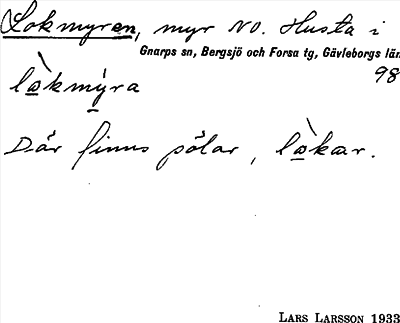 Lokmyren, myr NO. Husta i
Gnarps sn, Bergsjö och Forsa tg, Gävleborgs län
98
lòkmýra
Där finns pölar, lòkar.
LARS LARSSON 1933